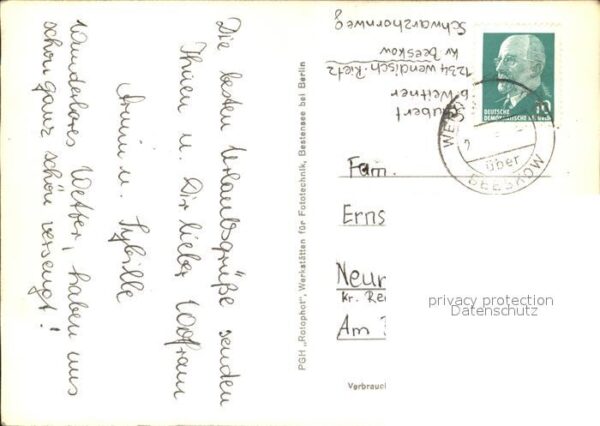 Die besten Urlaubsgrüße senden
Ihnen u. Dir lieber Wolfram
Armin u. Sybille
Wunderbares Wetter, haben uns
schon ganz schön versengt!
PGH „Rotophot", Werkstätten für Fototechnik, Bestensee bei Berlin
b. Weitner
1234 Wendisch-Rietz
Kr. Beeskow
Schwarzhornweg
DEUTSCHE
DEMOKRATISCHE
10
über
BEESKOW
Fam.
Erns
Neur
Kr. Re
Am
privacy protection
Datenschutz
Verbrauc